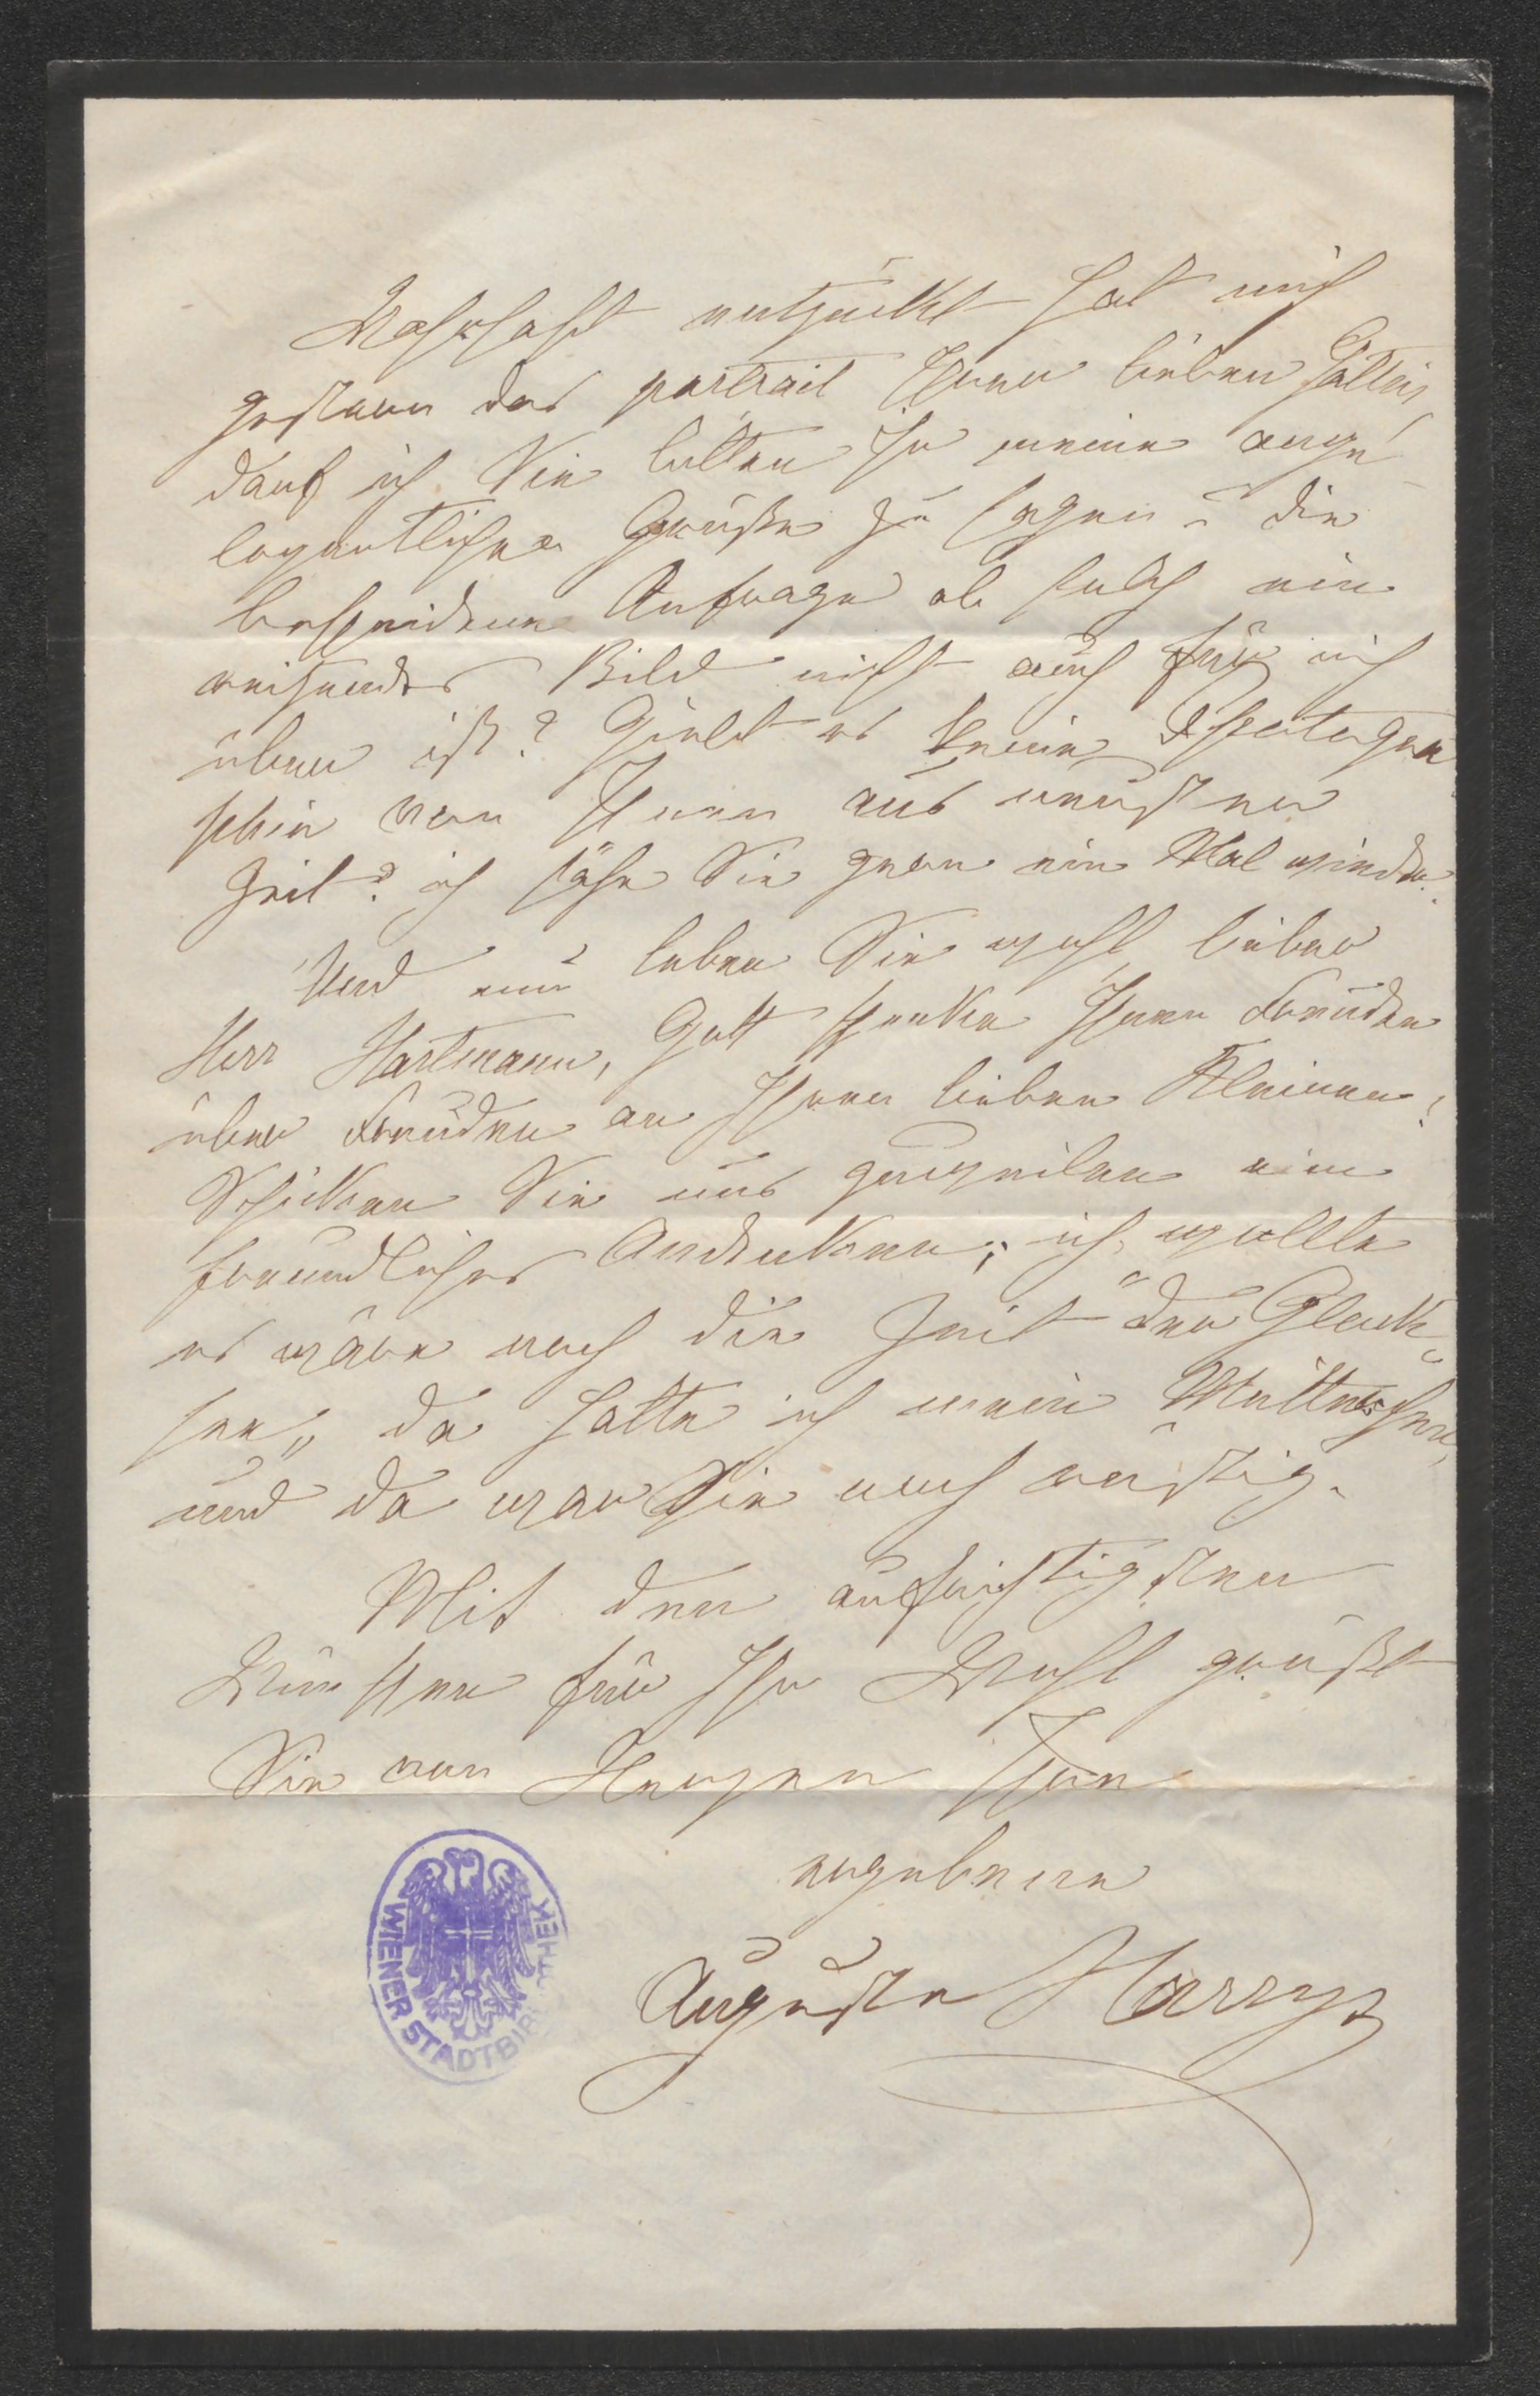 Wahrhaft entzückt hat mich
gestern das portrait Ihrer lieben Gattin,
darf ich Sie bitten Ihr meine ange
legentlichen Grüße zu sagen u die
bescheidene Anfrage ob solch ein
reitzendes Bild nicht auch für mich
übrig ist? Giebt es keine Photogra
phie von Ihnen aus neuster
Zeit? ich sähe Sie gern ein Mal wieder.
Und nun leben Sie wohl, lieber
Herr Hartmann, Gott schenke Ihnen Freuden
über Freuden an Ihren lieben Kleinen!
Schicken Sie uns zuweilen ein
freundliches Andenken; ich wollte
es wäre noch die Zeit der Glock„
see„ da hatte ich mein Mütterchen,
und da war Sie noch rüstig.
Mit den aufrichtigsten
Wünschen für Ihr Wohl grüßt
Sie von Herzen Ihre
ergebene
Auguste Harrys
WIENER STADTBIBLIOTHEK